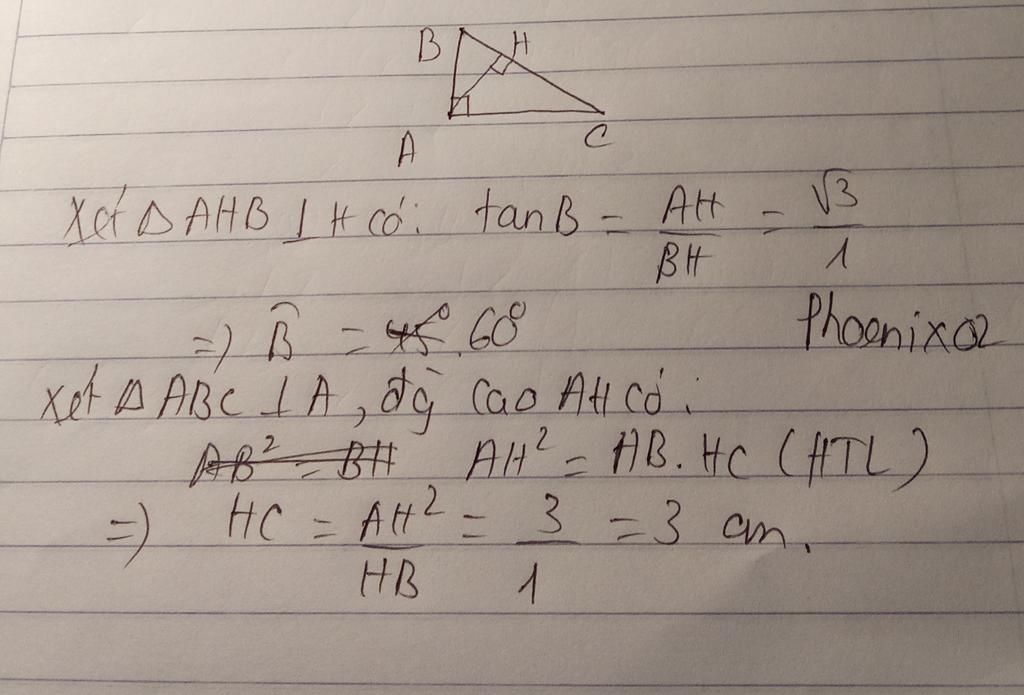 B H
A C
Xét △ AHB ⊥ H có: tan B = AH/BH = √3/1
=> B̂ = 45° 60°
Phoenix02
Xét △ ABC ⊥ A, đg cao AH có:
AB² = BH AH² = HB. HC (HTL)
=> HC = AH²/HB = 3/1 = 3 cm.